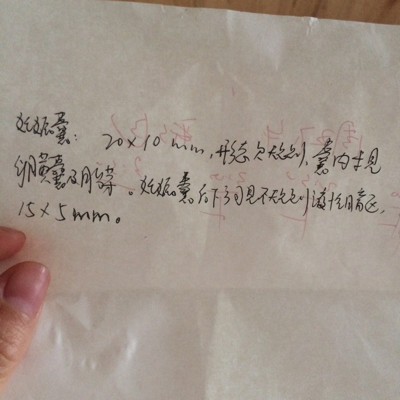 妊娠囊：20×10mm，形态欠规则、囊内未见
卵黄囊及胚芽。妊娠囊后下方可见不规则液性暗区，
15×5mm。